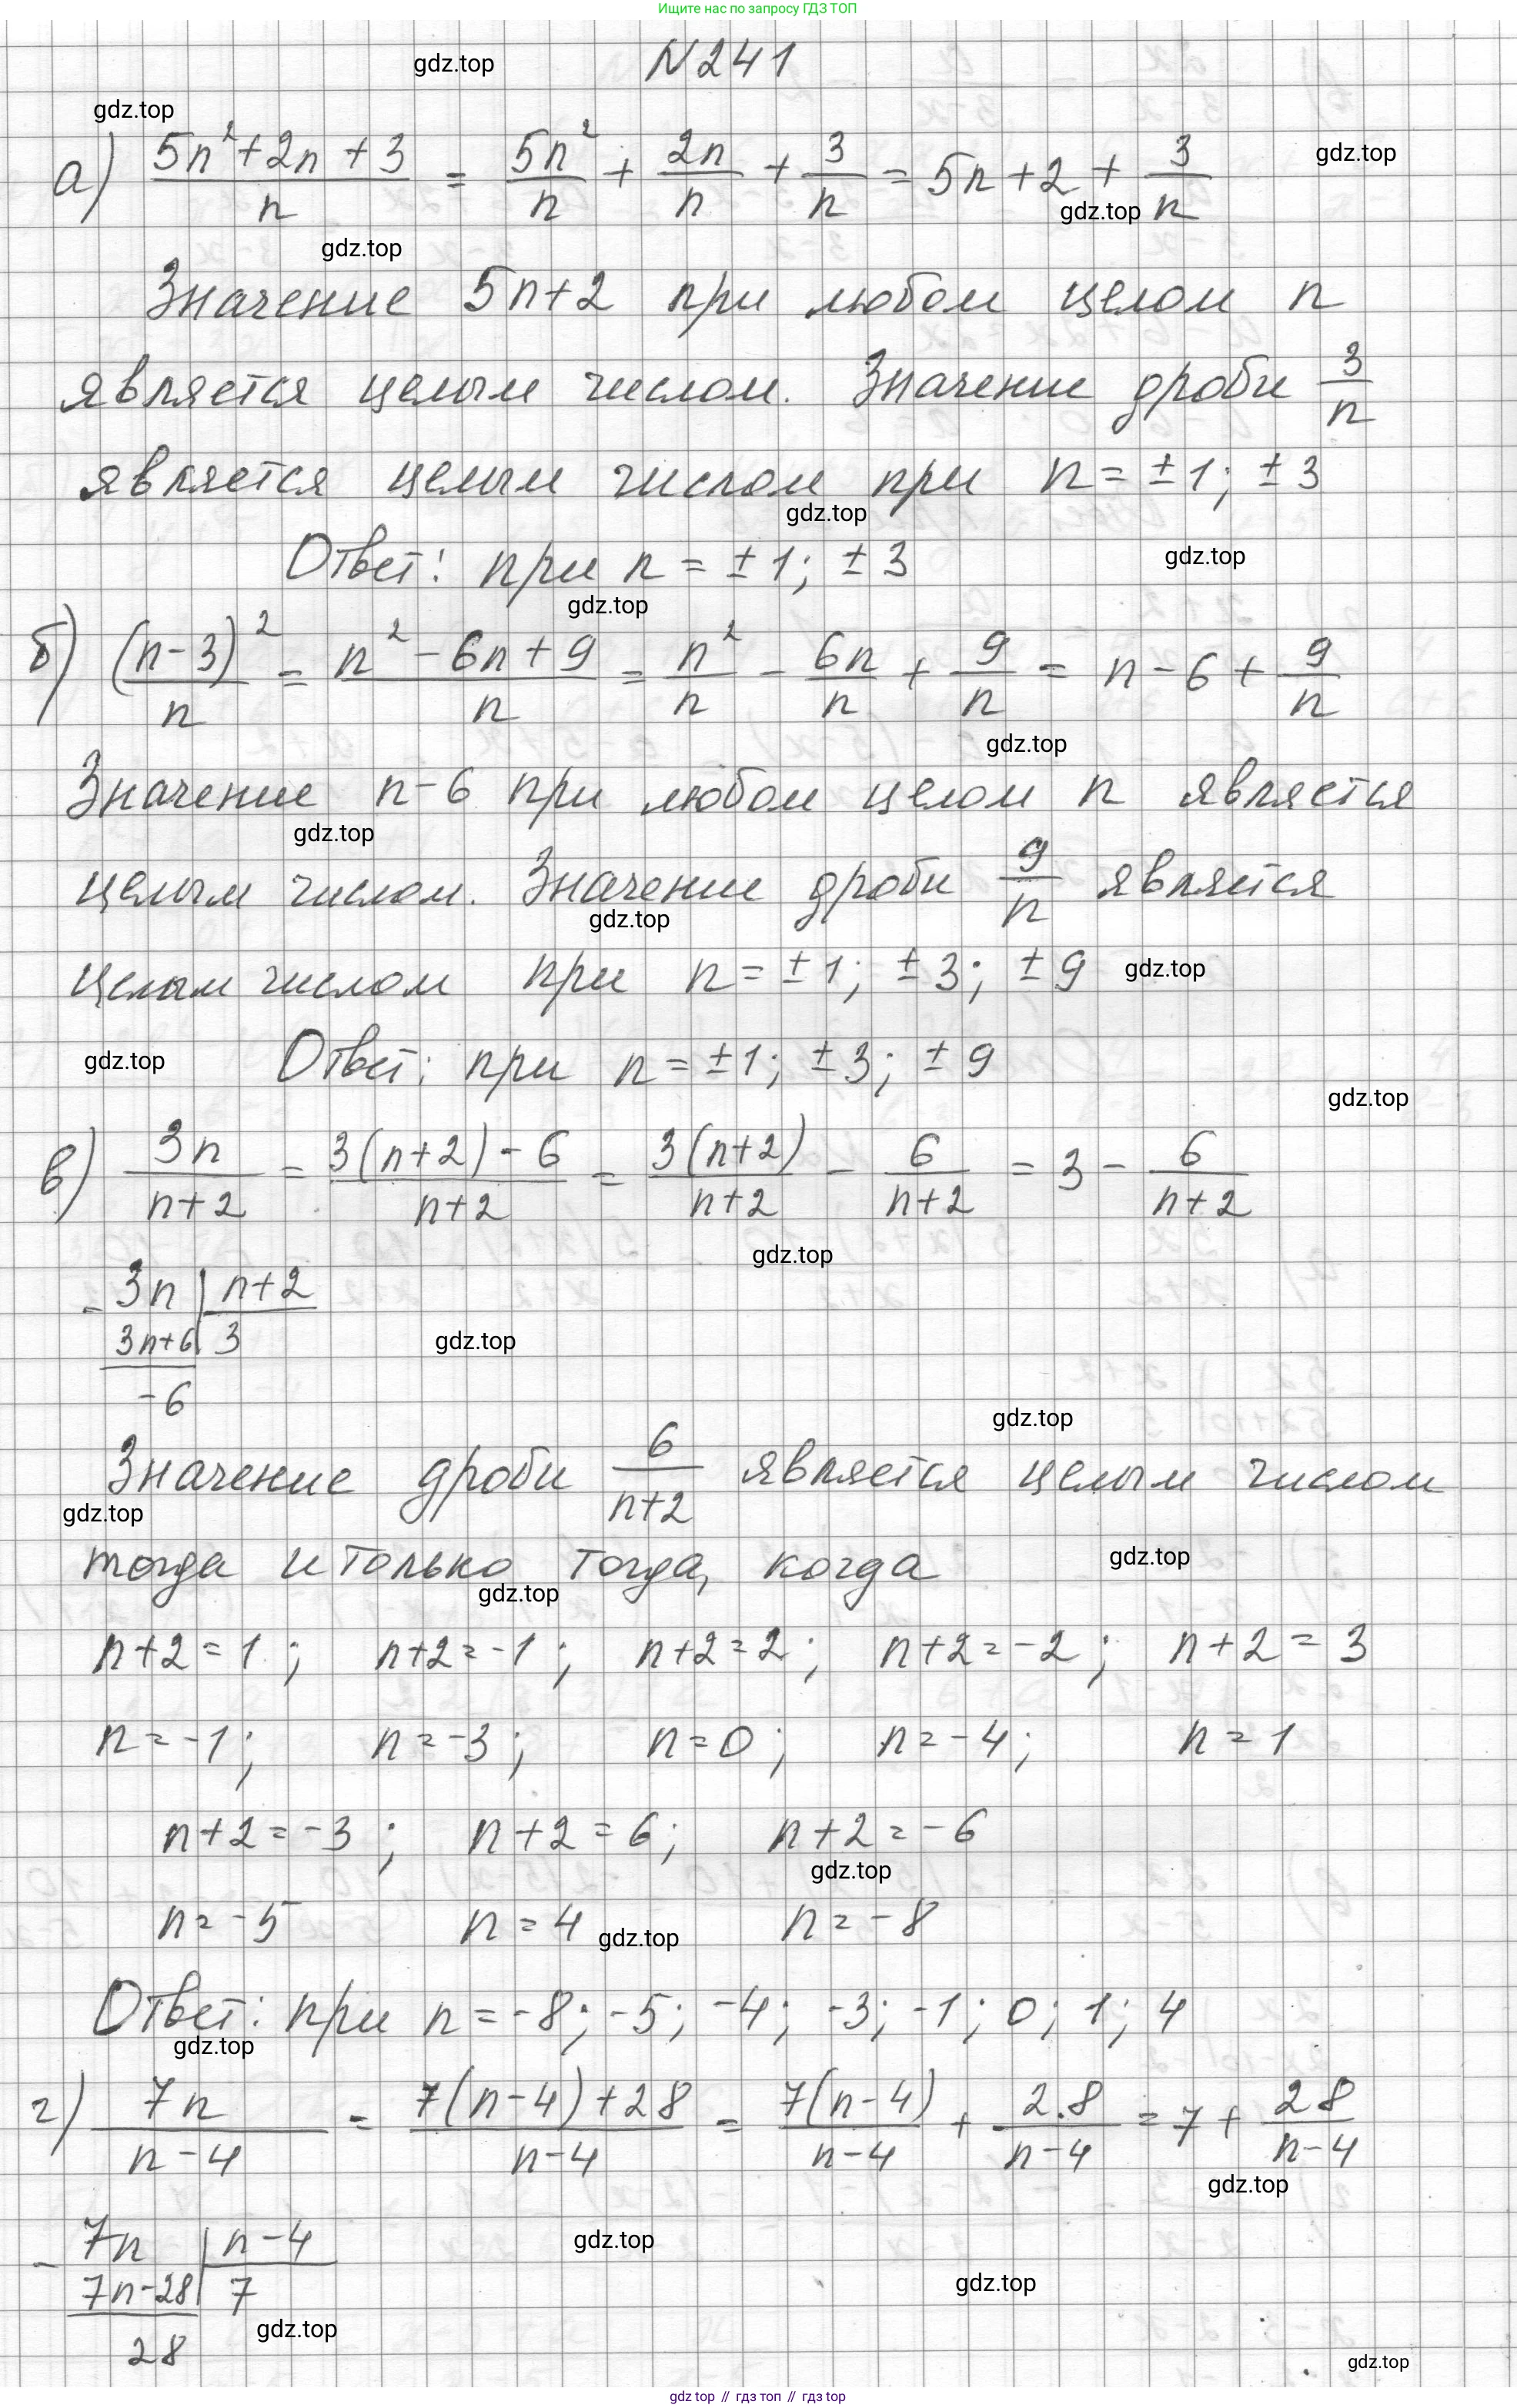 Ищите нас по запросу ГДЗ ТОП
gdz.top N241
gdz.top
а) (5n²+2n+3)/n = 5n²/n + 2n/n + 3/n = 5n+2+3/n gdz.top
gdz.top
gdz.top
Значение 5n+2 при любом целом n
является целым числом. Значение дроби 3/n
является целым числом при n=±1; ±3
gdz.top
Ответ: при n=±1; ±3 gdz.top
gdz.top
б) (n-3)²/n = (n²-6n+9)/n = n²/n - 6n/n + 9/n = n-6+9/n
gdz.top
Значение n-6 при любом целом n является
gdz.top
целым числом. Значение дроби 9/n является
gdz.top
целым числом при n=±1; ±3; ±9 gdz.top
gdz.top Ответ: при n=±1; ±3; ±9
gdz.top
в) 3n/(n+2) = (3(n+2)-6)/(n+2) = 3(n+2)/(n+2) - 6/(n+2) = 3 - 6/(n+2)
gdz.top
- 3n | n+2
3n+6 | 3 gdz.top
-6
gdz.top
Значение дроби 6/(n+2) является целым числом
gdz.top
тогда и только тогда, когда gdz.top
gdz.top
n+2=1; n+2=-1; n+2=2; n+2=-2; n+2=3
n=-1; n=-3; n=0; n=-4; n=1
n+2=-3; n+2=6; n+2=-6
gdz.top
n=-5 n=4 n=-8
gdz.top
Ответ: при n=-8; -5; -4; -3; -1; 0; 1; 4
gdz.top
г) 7n/(n-4) = (7(n-4)+28)/(n-4) = 7(n-4)/(n-4) + 28/(n-4) = 7 + 28/(n-4)
gdz.top
- 7n | n-4 gdz.top
7n-28 | 7 gdz.top
gdz.top
28
gdz.top
gdz top // гдз топ // gdz top